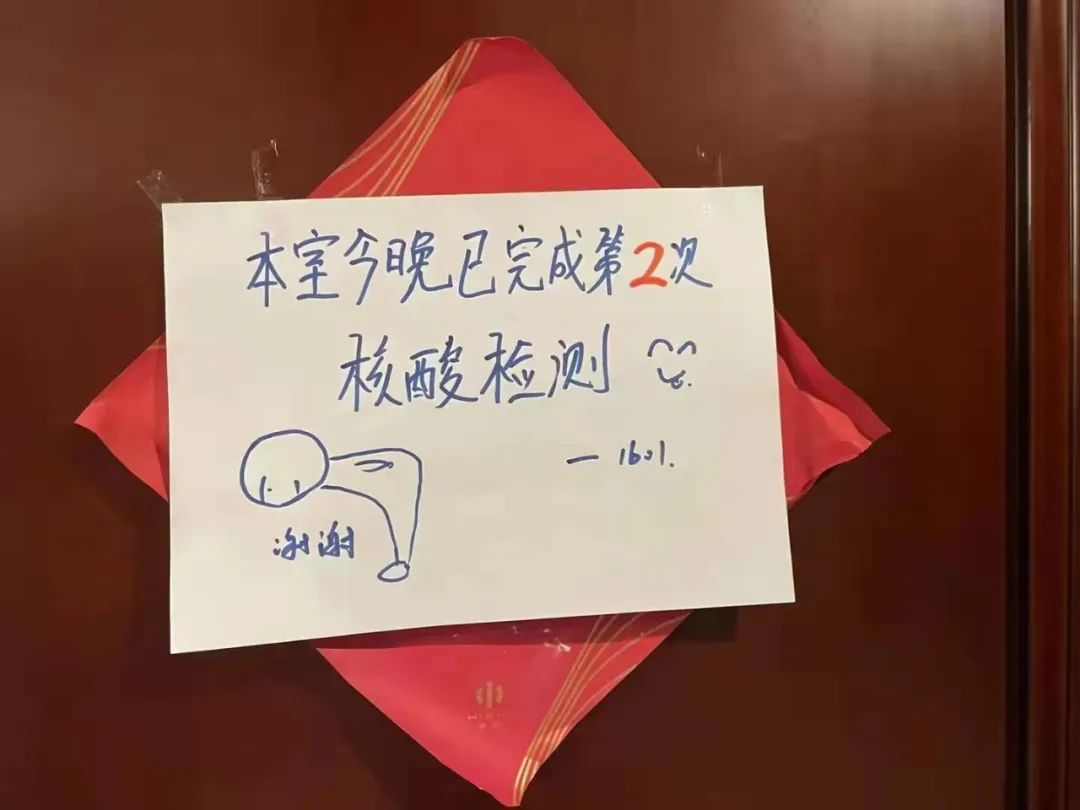 本室今晚已完成第2次
核酸检测
— 1601.
谢谢